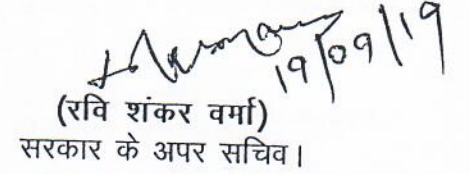 19/09/19
(रवि शंकर वर्मा)
सरकार के अपर सचिव।